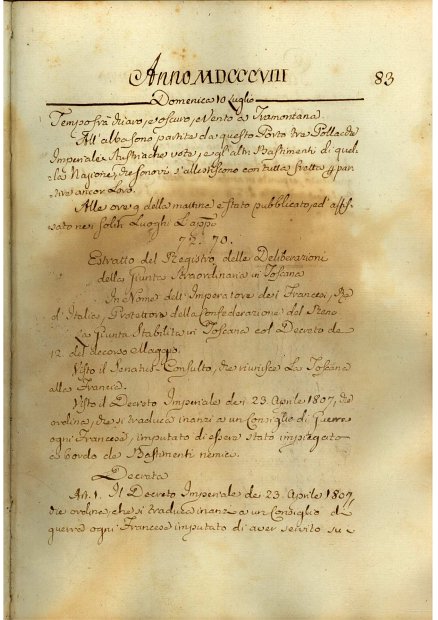 Anno MDCCCVIII
83
Domenica 10 Luglio
Tempo frà chiaro, e oscuro, e Vento a Tramontana
All'alba sono partite da questo Porto tre Pollacche
Imperiali Austriache vote, e gl'altri Bastimenti di quel-
la Nazione, che sonovi s'allestiscono con tutta fretta p par-
tire ancor Loro.
Alle ore 9 della mattina è stato pubblicato, ed affis-
sato nei soliti Luoghi L'app
70.
Estratto del Registro delle Deliberazioni
della Giunta Straordinaria in Toscana
In Nome dell'Imperatore dei Francesi, Rè
d'Italia, Protettore della Confederazione del Reno
La Giunta Stabilita in Toscana col Decreto de
12 del decorso Maggio.
Visto il Senatus-Consulto, che riunisce La Toscana
alla Francia.
Visto il Decreto Imperiale dei 23. Aprile 1807, che
ordina, che si traduca inanzi a un Consiglio di Guerra
ogni Francese, imputato di essere stato impiegato
a bordo de Bastimenti nemici.
Decreta
Art. 1. Il Decreto Imperiale de 23. Aprile 1807
che ordina, che si traduca inanzi a un Consiglio di
guerra ogni Francese imputato di aver servito su